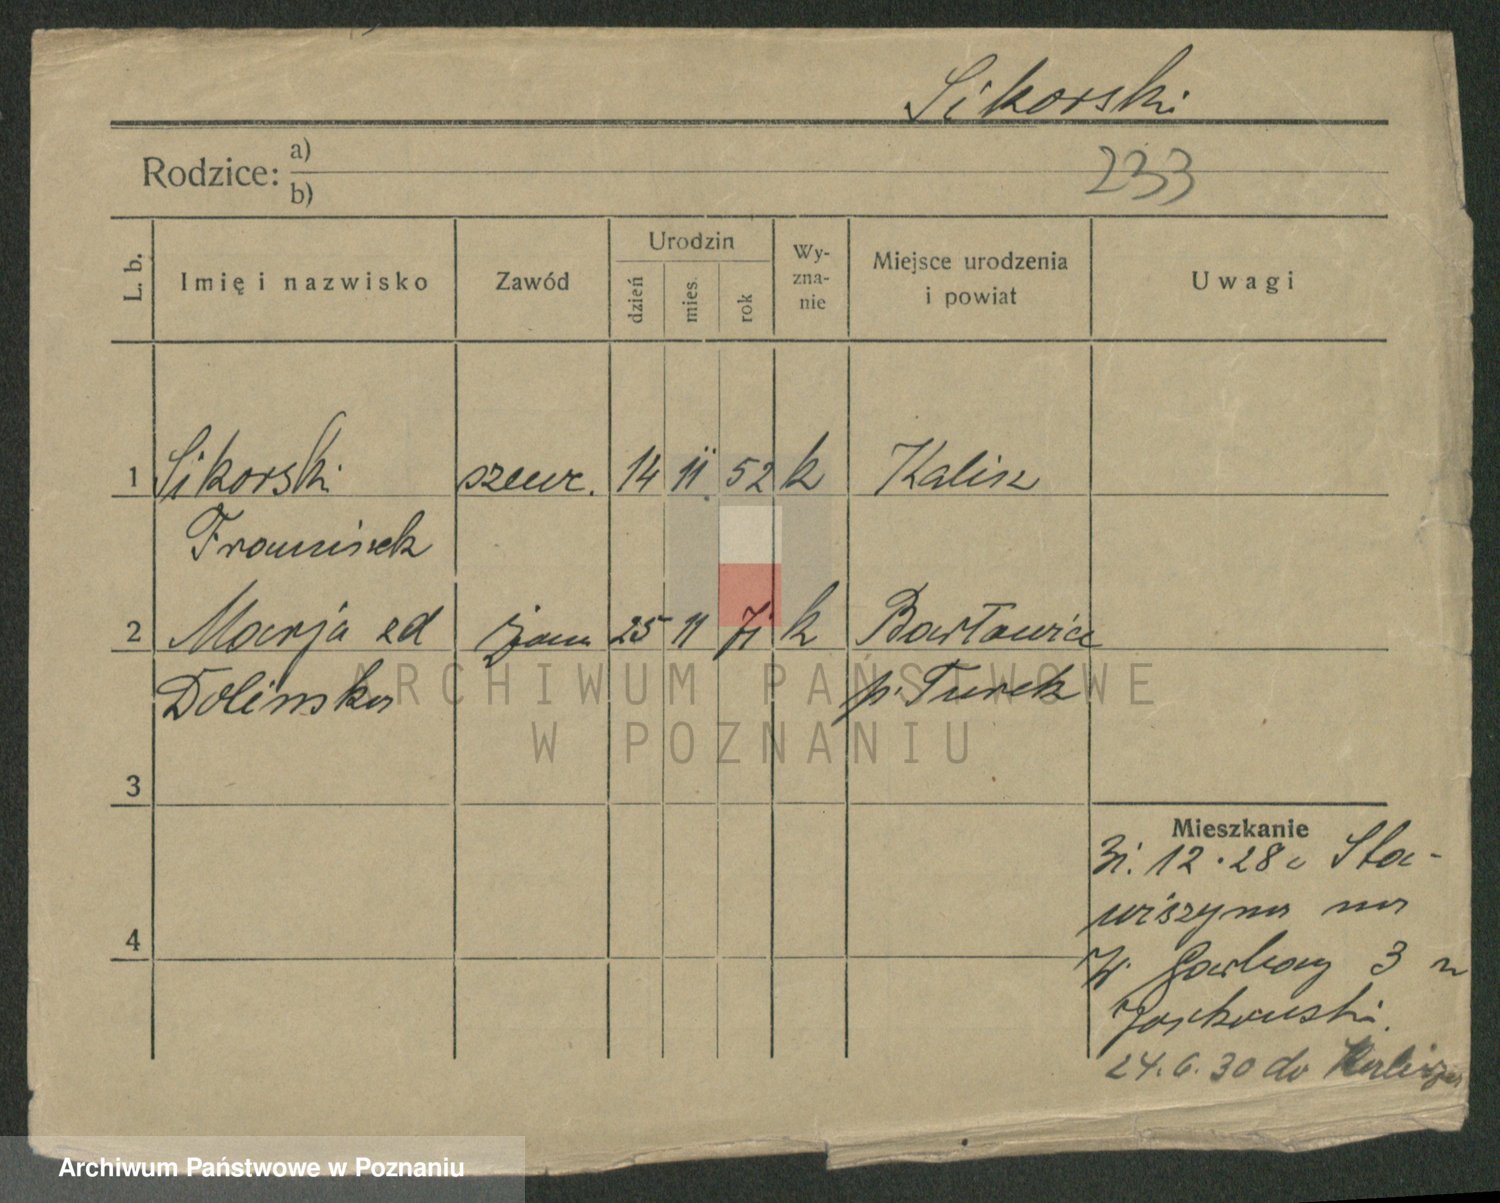 Sikorski
Rodzice: a)
b)
233
L. b.
Imię i nazwisko
Zawód
Urodzin
dzień
mies.
rok
Wy-
zna-
nie
Miejsce urodzenia
i powiat
Uwagi
1 Sikorski szewc. 14 11 52 k Kalisz
Franciszek
2 Marja zd żona 25 11 71 k
Dolinska p. Turek
3
4
Mieszkanie
31. 12. 28 Sta-
wiszyna na
W. Garbary 3
24. 6. 30 do Kalisza
ARCHIWUM PAŃSTWOWE
W POZNANIU
Archiwum Państwowe w Poznaniu